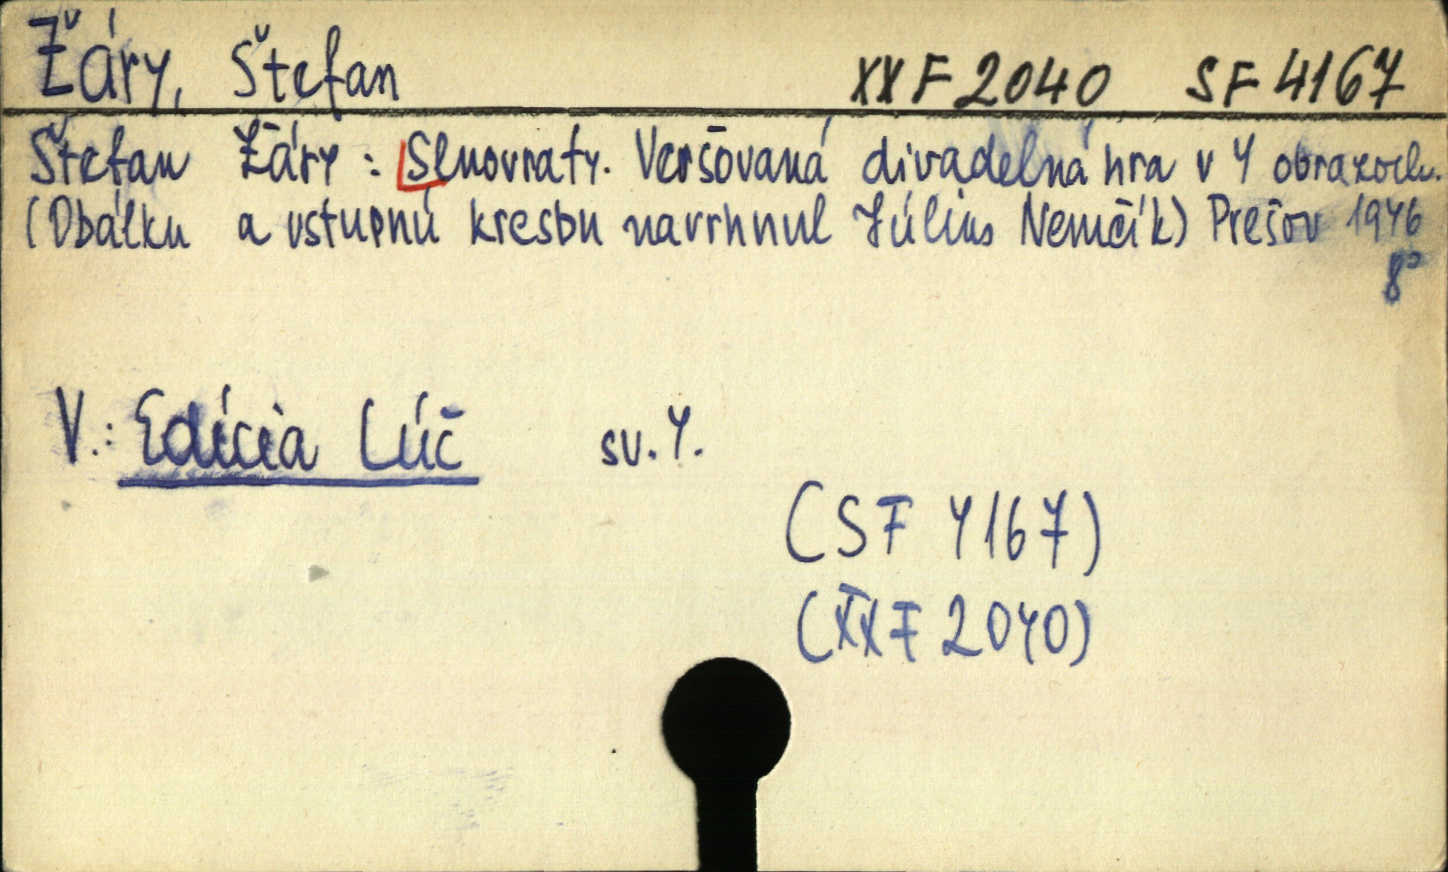 Žáry, Štefan XX F 2040 SF 4167
Štefan Žáry: Slnovraty. Veršovaná divadelná hra v 4 obrazoch.
(Obálku a vstupnú kresbu navrhnul Július Nemčík) Prešov 1946
8°
V.: Edícia Lúč sv. 4.
(SF 4167)
(XXF 2040)